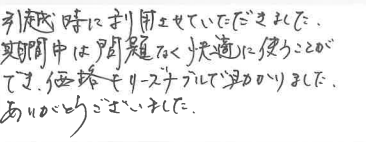 引越時に利用させていただきました.
期間中は問題なく快適に使うことが
でき.価格もリーズナブルで助かりました.
ありがとうございました.